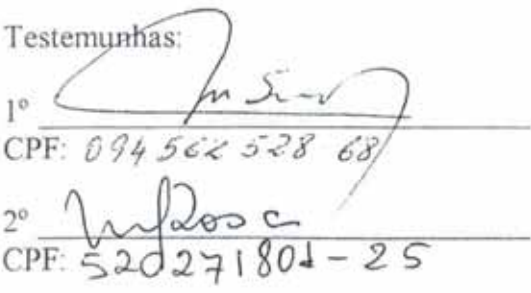 Testemunhas:
1º
CPF: 094 562 528 68
2º
CPF: 520271801-25